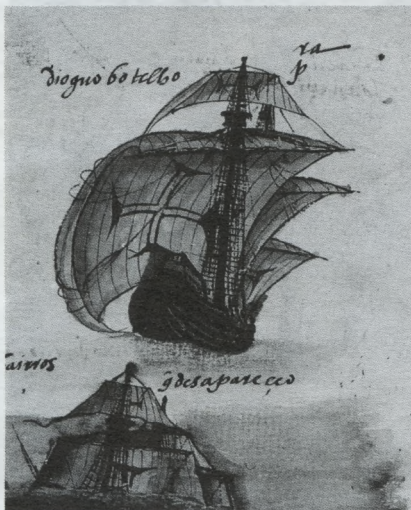 dioguo botelho
ra
p
airros
q̃ desapareceo